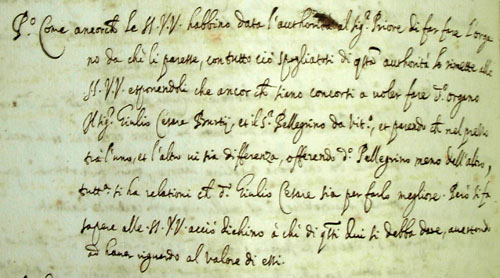 P.º Come ancorch le SS.VV. habbino data l'authorità al Sig.r Priore di far fare l'orga
no da chi li paresse, con tutto ciò spogliatosi di q.sta authorità la rimette alle
SS.VV. esponendoli che ancor ch sieno concorsi a voler fare d.º organo
il Sig.r Giulio Cesare Burzi, et il S.r Pellegrino da Vit.º, et parendo ch nel prezzo
trà l'uno, et l'altro vi sia differenza, offerendo d.º Pellegrino meno dell'altro,
tutt.a si ha relationi ch d.º Giulio Cesare sia per farlo megliore. Però si fà
sapere alle SS.VV. acciò dichino à chi di q.sti dui si debba dare, avertendo
ad haver riguardo al valore di essi.